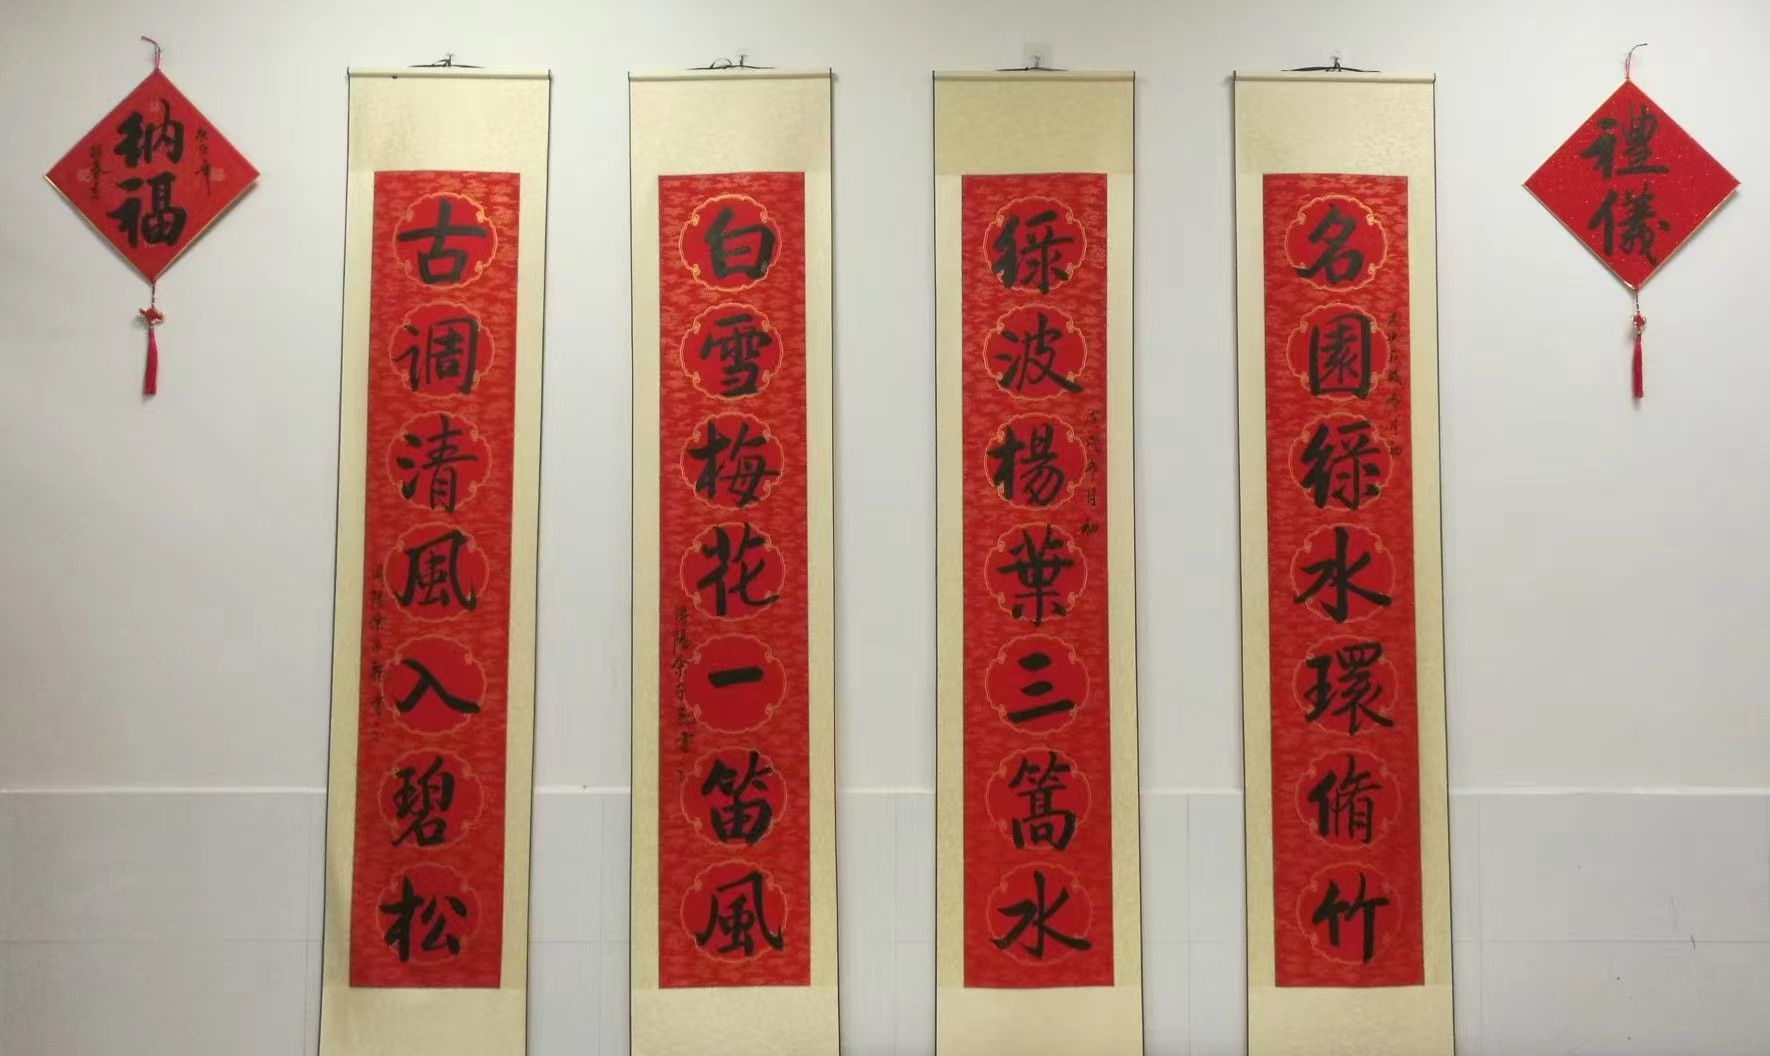 禮儀
名園綠水環脩竹
綠波楊葉三篙水
白雪梅花一笛風
潯陽
古調清風入碧松
納福